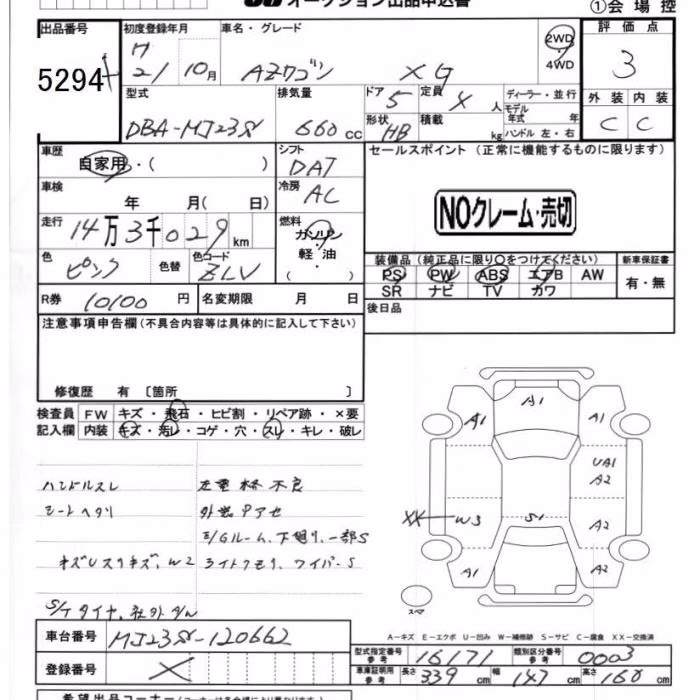 オークション出品申込書
①会場控
出品番号
5294
初度登録年月
21 10月
車名・グレード
AZワゴン XG
2WD
・
4WD
評価点
3
型式
DBA-MJ23S
排気量
660 cc
ドア 5
定員 人
形状 HB
積載 kg
ディーラー・並行
モデル年式 年
ハンドル 左・右
外装 内装
C C
車歴
自家用・( )
シフト
DAT
セールスポイント (正常に機能するものに限ります)
車検
年 月(日)
冷房
AC
NOクレーム・売切
走行
14万3千029km
燃料
ガソリン
・
軽油
( )
色
ピンク
色替
色コード
ZLV
装備品(純正品に限り○をつけてください)
PS PW ABS エアB AW
SR ナビ TV カワ
新車保証書
有・無
R券 10100 円
名変期限 月 日
後日品
注意事項申告欄(不具合内容等は具体的に記入して下さい)
修復歴 有 〔箇所 〕
検査員 FW キズ・飛石・ヒビ割・リペア跡・×要
記入欄 内装 キズ・汚レ・コゲ・穴・スレ・キレ・破レ
ハンドルスレ
シートヘタリ
外装
E/Gルーム、下廻り、一部S
W2 ライトクモリ、ワイパーS
S/Tタイヤ、
A1
A1 A1
UA1
A2
XX W3 S1 A2
A1 A2
スペア
A-キズ E-エクボ U-凹み W-補修跡 S-サビ C-腐食 XX-交換済
車台番号 MJ23S-120662
登録番号
型式指定番号 参考 16171
類別区分番号 参考 0003
車庫証明用 参考 長さ 339 cm 幅 147 cm 高さ 168 cm
希望出品コーナー